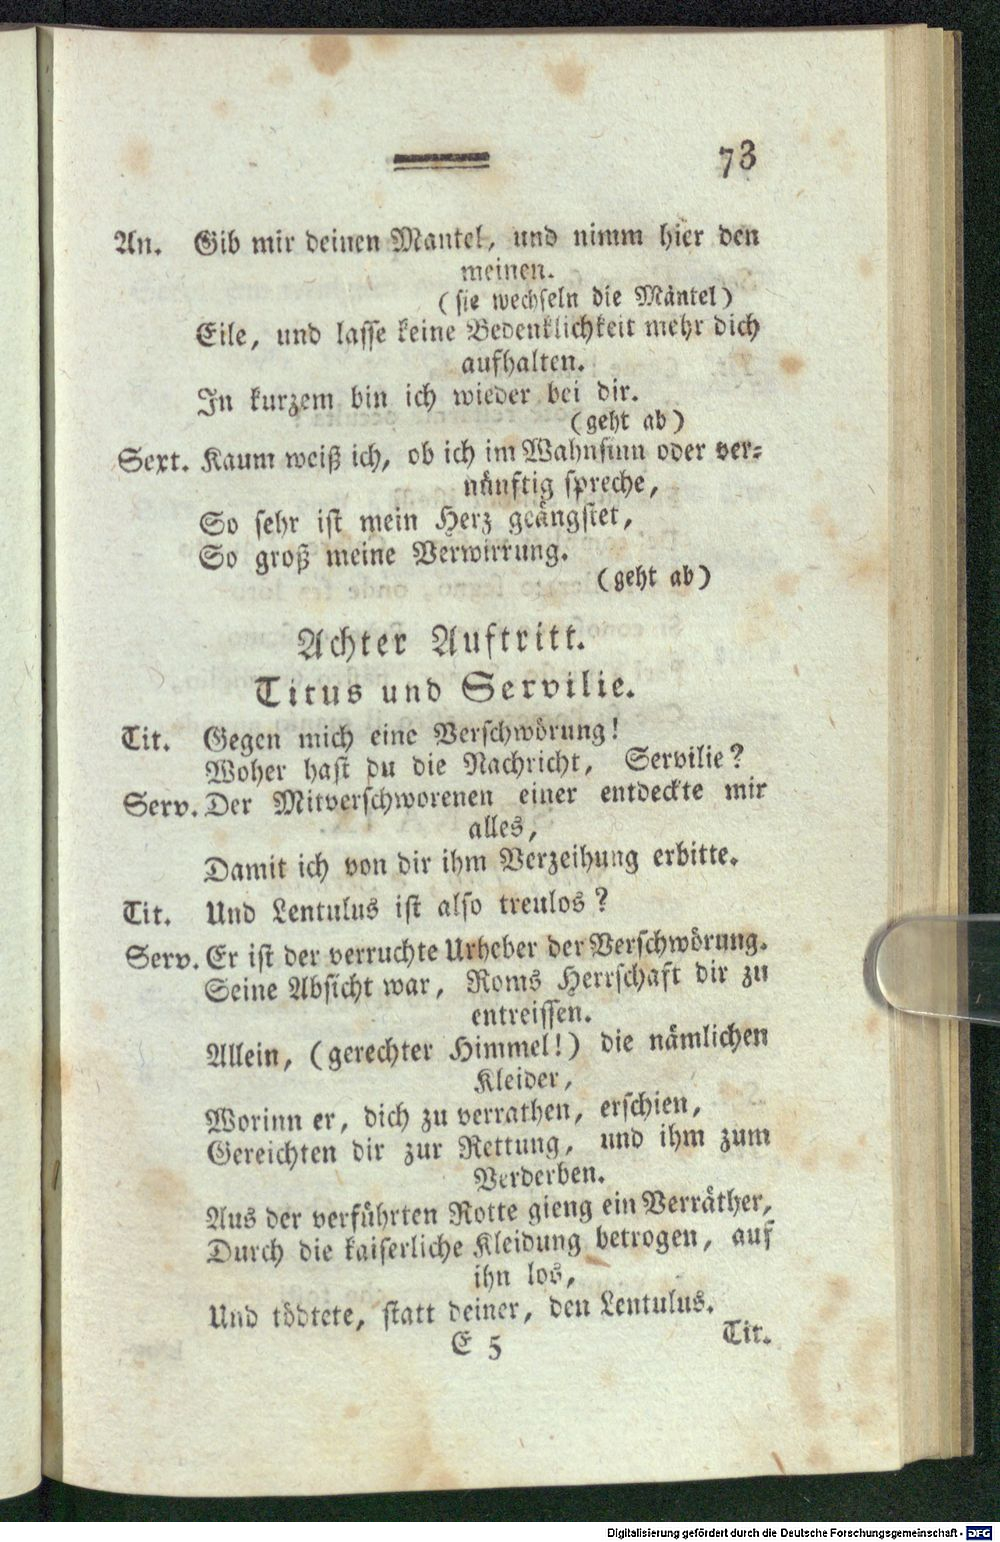 73
An. Gib mir deinen Mantel, und nimm hier den
meinen.
(sie wechseln die Mäntel)
Eile, und lasse keine Bedenklichkeit mehr dich
aufhalten.
In kurzem bin ich wieder bei dir.
(geht ab)
Sext. Kaum weiß ich, ob ich im Wahnsinn oder ver-
nünftig spreche,
So sehr ist mein Herz geängstet,
So groß meine Verwirrung.
(geht ab)
Achter Auftritt.
Titus und Servilie.
Tit. Gegen mich eine Verschwörung!
Woher hast du die Nachricht, Servilie?
Serv. Der Mitverschworenen einer entdeckte mir
alles,
Damit ich von dir ihm Verzeihung erbitte.
Tit. Und Lentulus ist also treulos?
Serv. Er ist der verruchte Urheber der Verschwörung.
Seine Absicht war, Roms Herrschaft dir zu
entreissen.
Allein, (gerechter Himmel!) die nämlichen
Kleider,
Worinn er, dich zu verrathen, erschien,
Gereichten dir zur Rettung, und ihm zum
Verderben.
Aus der verführten Rotte gieng ein Verräther,
Durch die kaiserliche Kleidung betrogen, auf
ihn los,
Und tödtete, statt deiner, den Lentulus.
E 5
Tit.
Digitalisierung gefördert durch die Deutsche Forschungsgemeinschaft - DFG